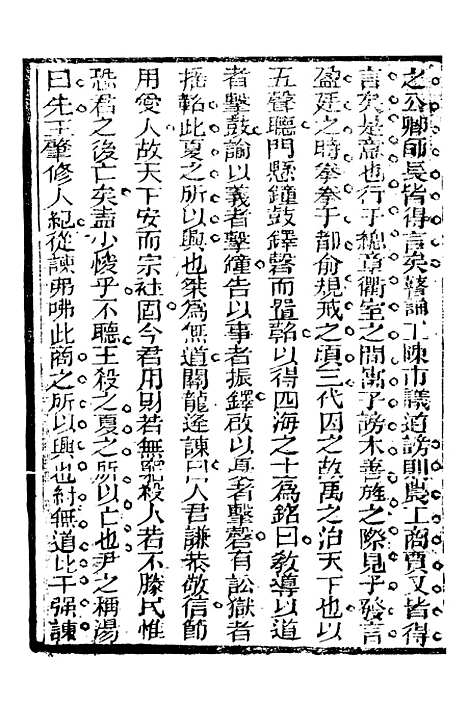 之公卿師長皆得言矣瞽誦工陳市議道謗則農工商賈又皆得
言矣是意也行于總章衢室之間寓于謗木善旌之際見于發言
盈廷之時拳拳于都俞規戒之項三代因之故禹之治天下也以
五聲聽門懸鐘鼓鐸磬而置鞀以得四海之士爲銘曰敎導以道
者擊鼓諭以義者擊鐘告以事者振鐸啟以憂者擊磬有訟獄者
搖鞀此夏之所以興也桀爲無道關龍逄諫曰人君謙恭敬信節
用愛人故天下安而宗社固今君用財若無窮殺人若不勝民惟
恐君之後亡矣盍少悛乎不聽王殺之夏之所以亡也尹之稱湯
曰先王肇修人紀從諫弗咈此商之所以興也紂無道比干强諫